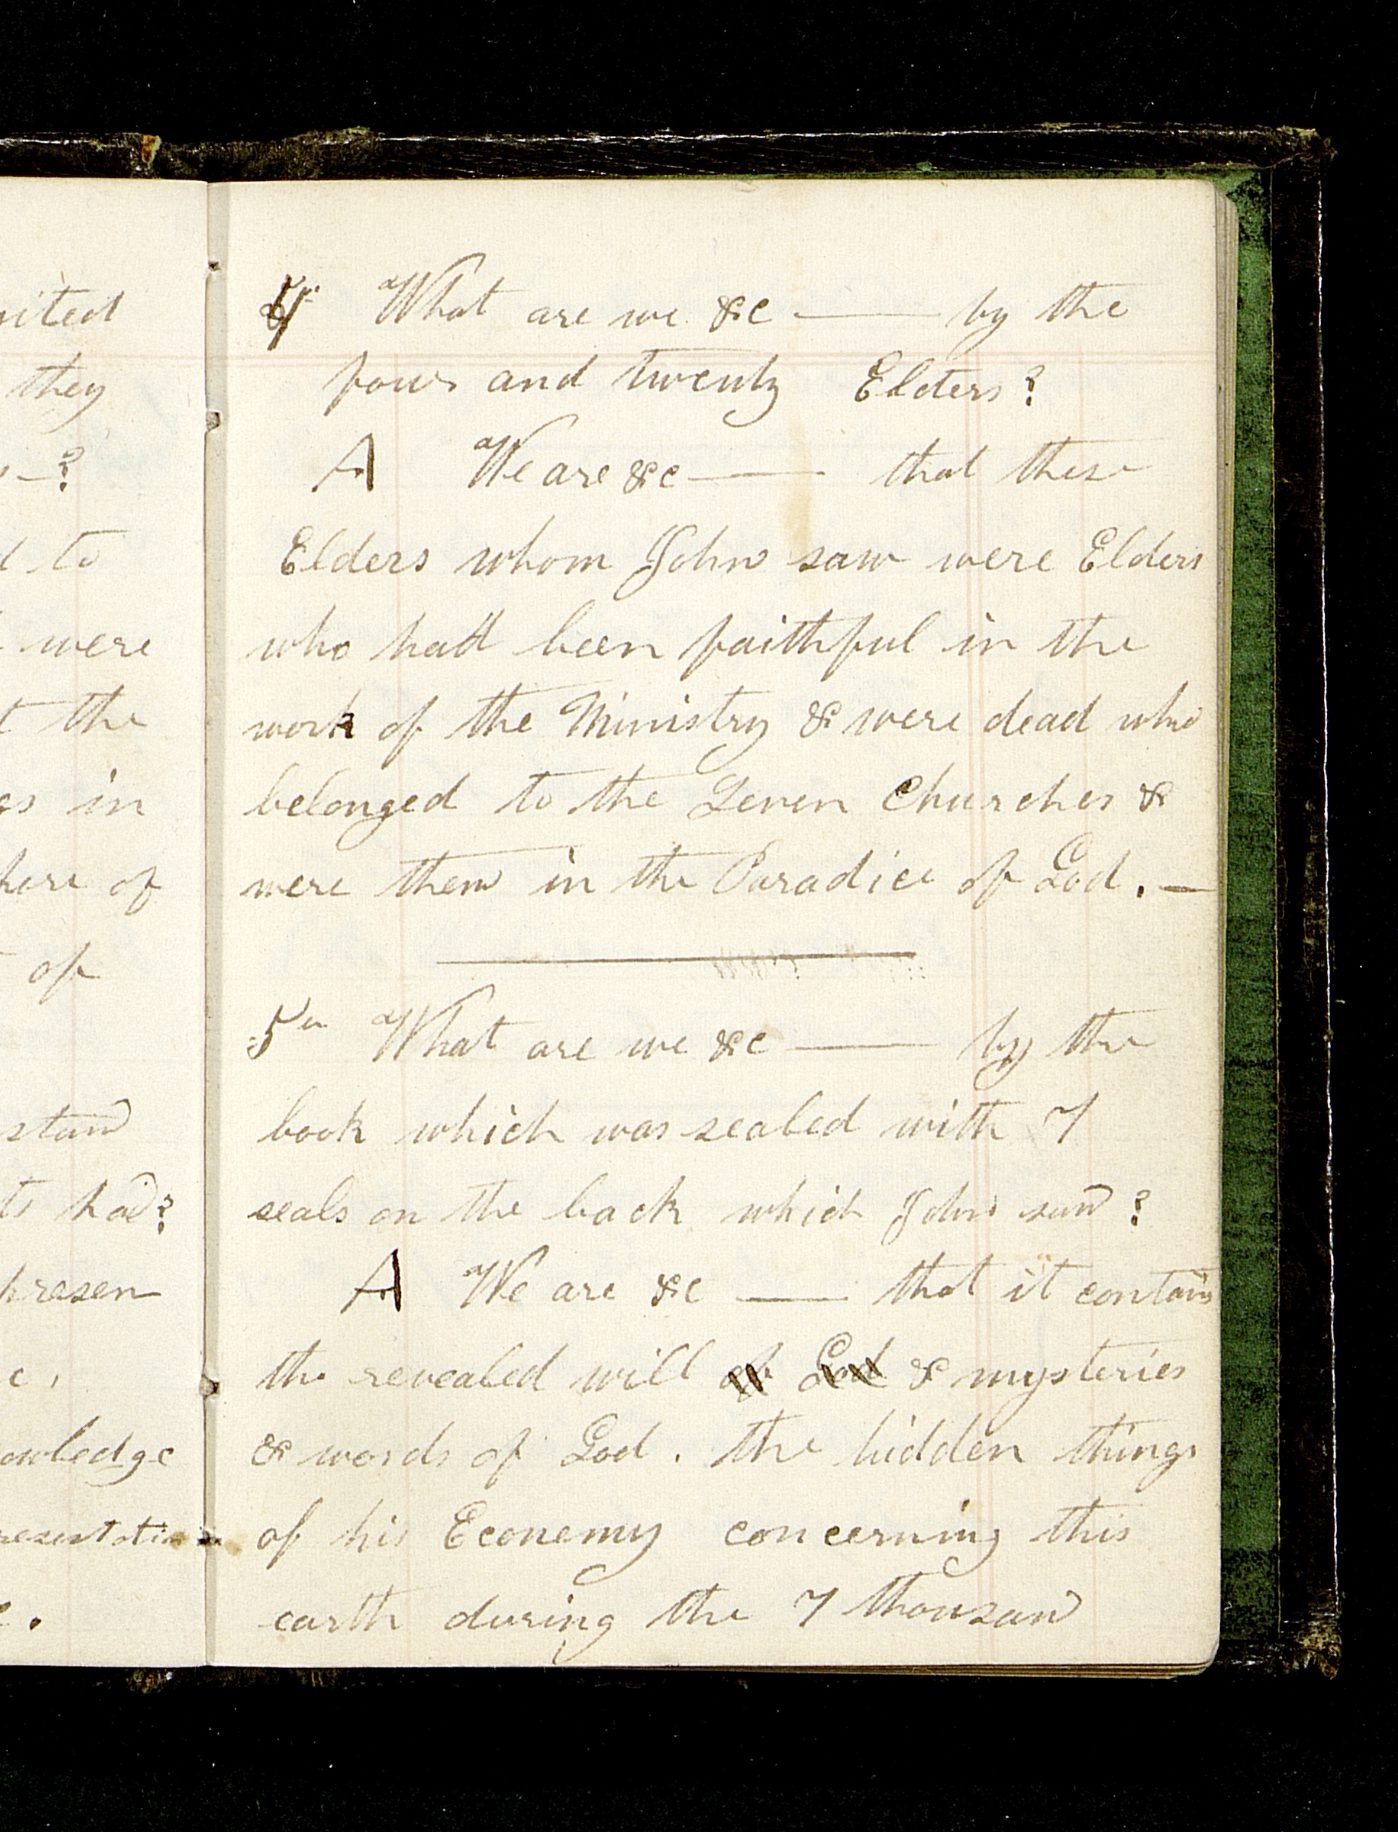 nited
they
?
to
were
t the
in
here of
of
stand
had?
presen
owledge
4 What are we &c — by the
four and twenty Elders?
A We are &c — that these
Elders whom John saw were Elders
who had been faithful in the
work of the Ministry & were dead who
belonged to the Seven Churches &
were then in the Paradice of God. —
5 What are we &c — by the
book which was sealed with 7
seals on the back which John saw?
A We are &c — that it contains
the revealed will of God & mysteries
& words of God. the hidden things
of his Economy concerning this
earth during the 7 thousand